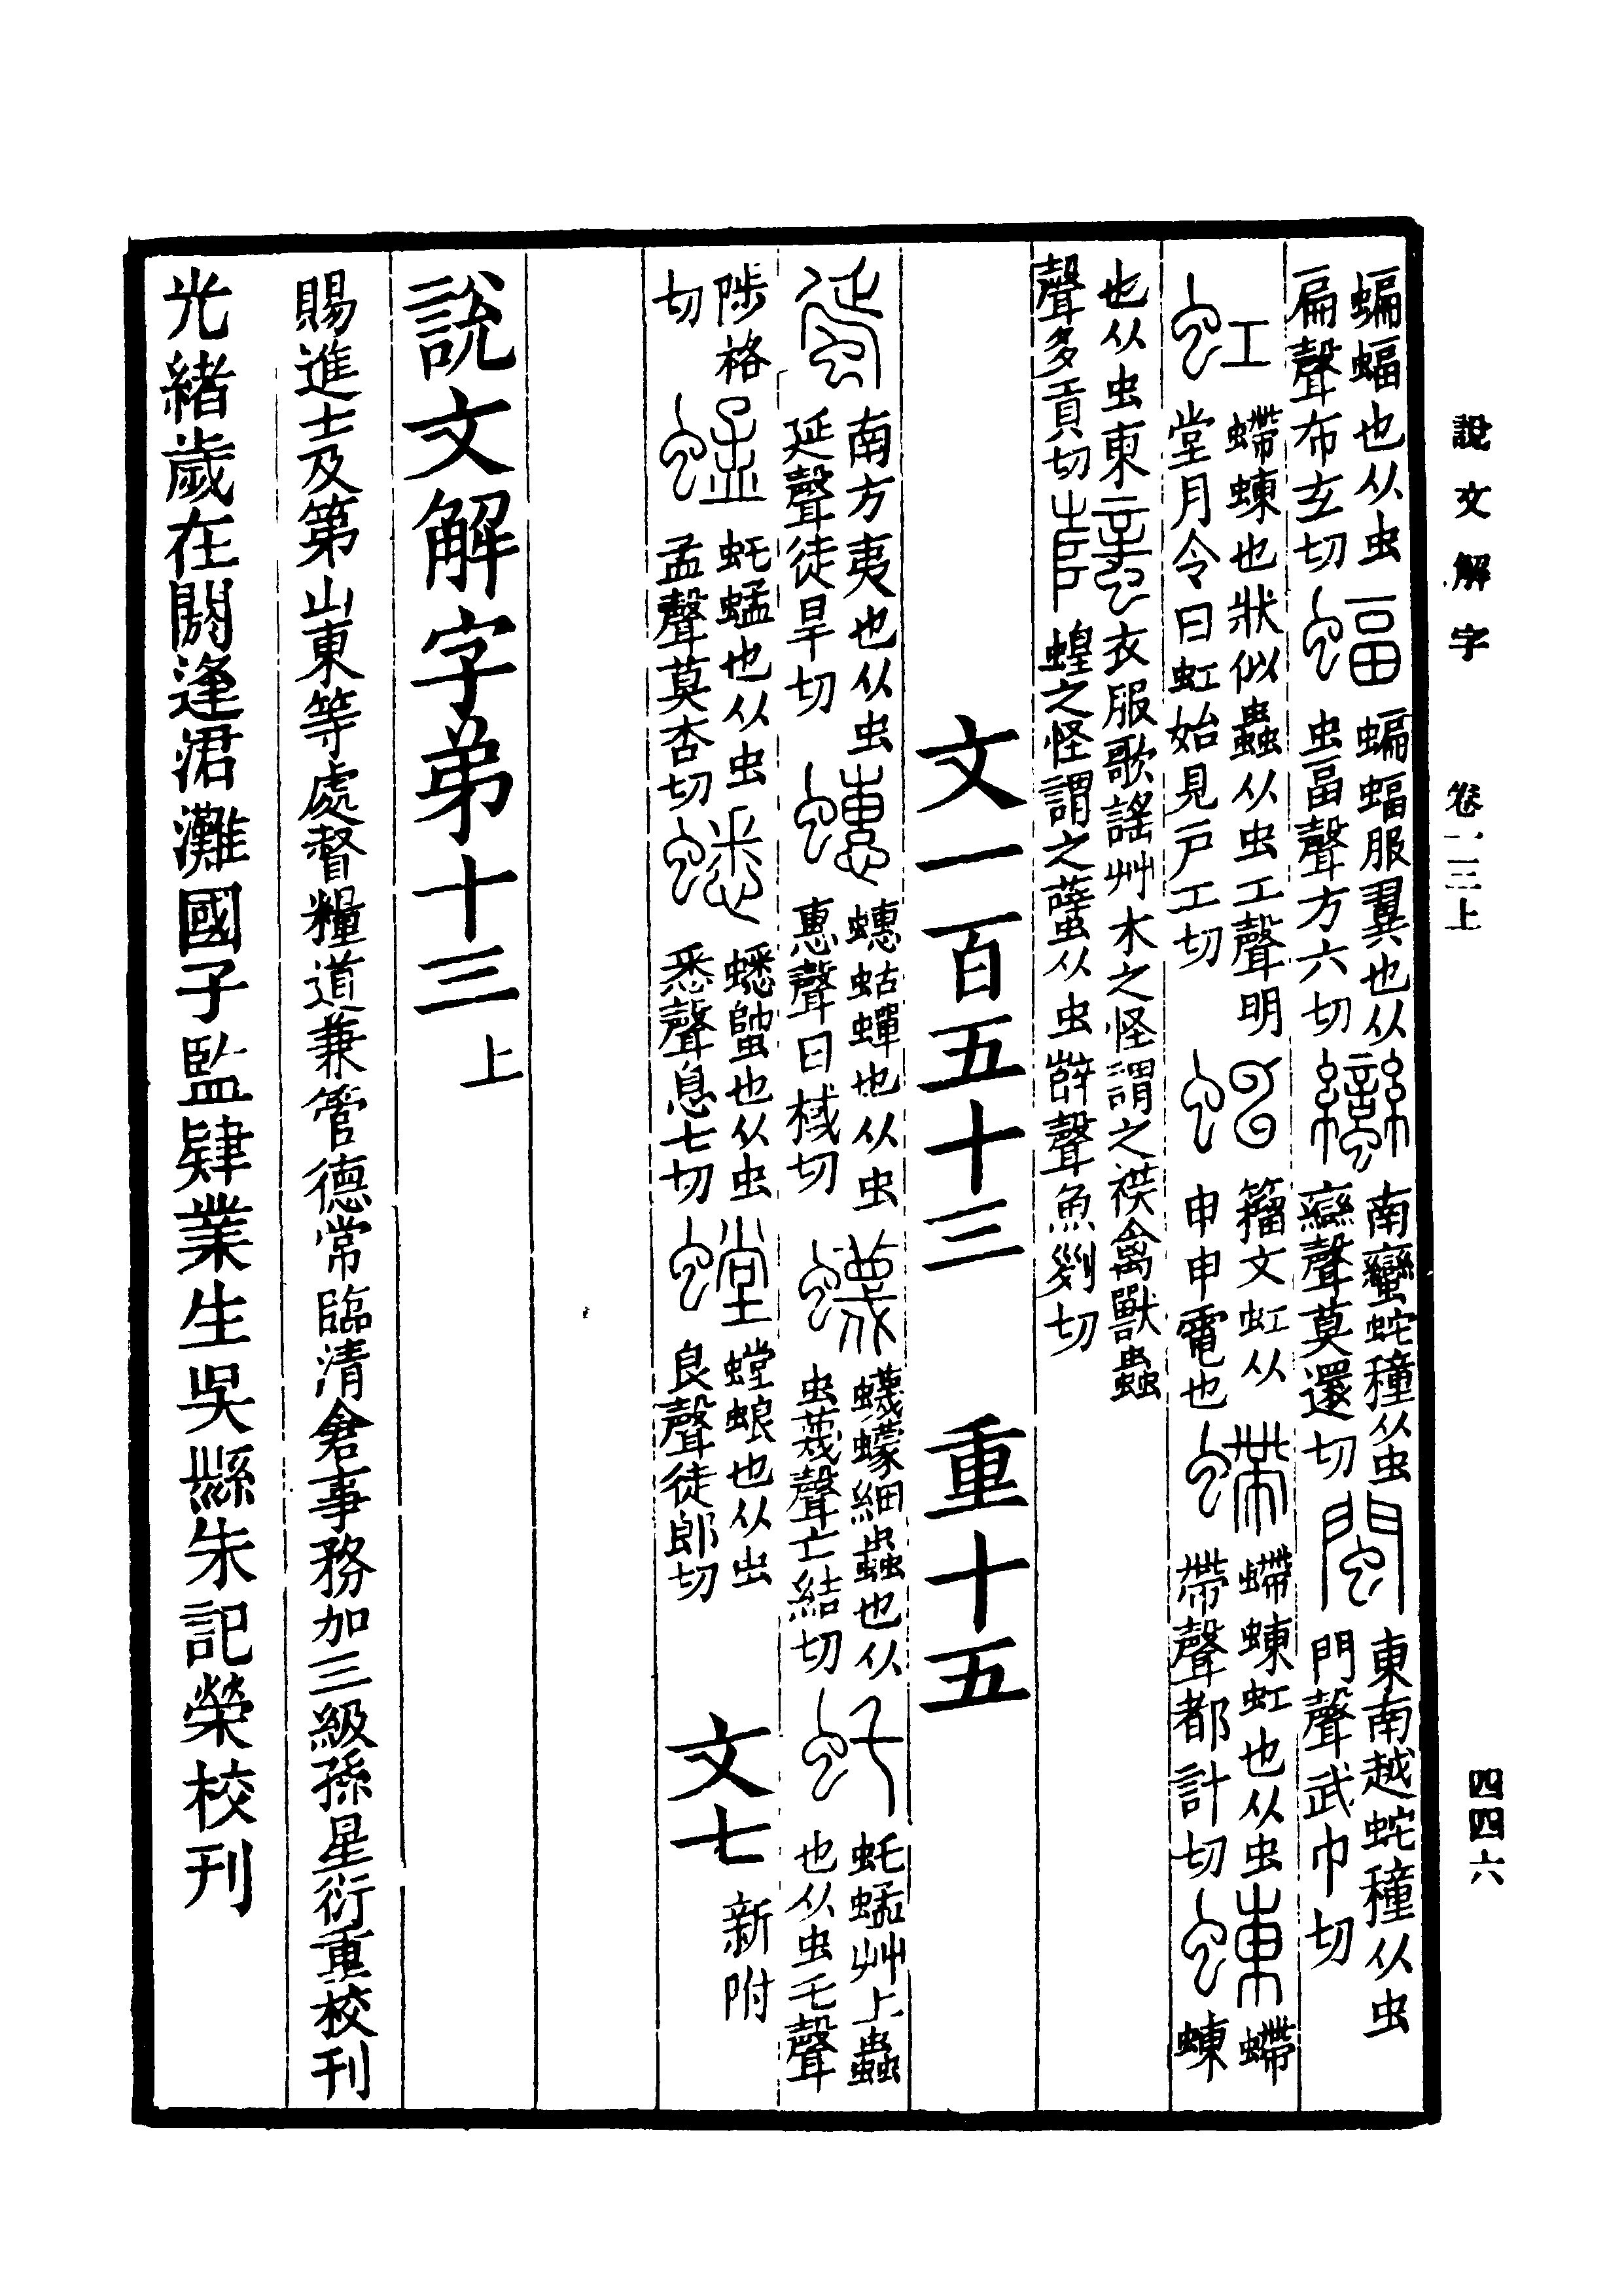 說文解字 卷一三上 四四六
蝙蝠也从虫扁聲布玄切 蝠 蝙蝠服翼也从虫畐聲方六切 蠻 南蠻蛇穜从虫䜌聲莫還切 閩 東南越蛇穜从虫門聲武巾切
虹 螮蝀也狀似蟲从虫工聲明堂月令曰虹始見戶工切 𧈫 籒文虹从申申電也 螮 螮蝀虹也从虫帶聲都計切 蝀 螮蝀
也从虫東聲多貢切 蠥 衣服歌謠艸木之怪謂之䄏禽獸蟲蝗之怪謂之蠥从虫辥聲魚列切
文一百五十三 重十五
蜑 南方夷也从虫延聲徒旱切 蟪 蟪蛄蟬也从虫惠聲曰械切 蠛 蠛蠓細蟲也从虫蔑聲亡結切 虴 虴蜢艸上蟲也从虫乇聲
陟格切 蜢 虴蜢也从虫孟聲莫杏切 蟋 蟋䗋也从虫悉聲息七切 螳 螳蜋也从虫良聲徒郎切 文七 新附
說文解字弟十三上
賜進士及第山東等處督糧道兼管德常臨清倉事務加三級孫星衍重校刊
光緒歲在閼逢涒灘國子監肄業生吳縣朱記榮校刊